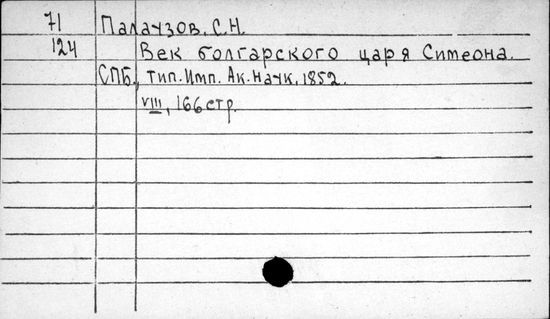 71 Палаузов, С.Н.
124 Век болгарского царя Симеона.
СПБ., тип. Имп. Ак. Наук, 1852.
VIII, 166 стр.